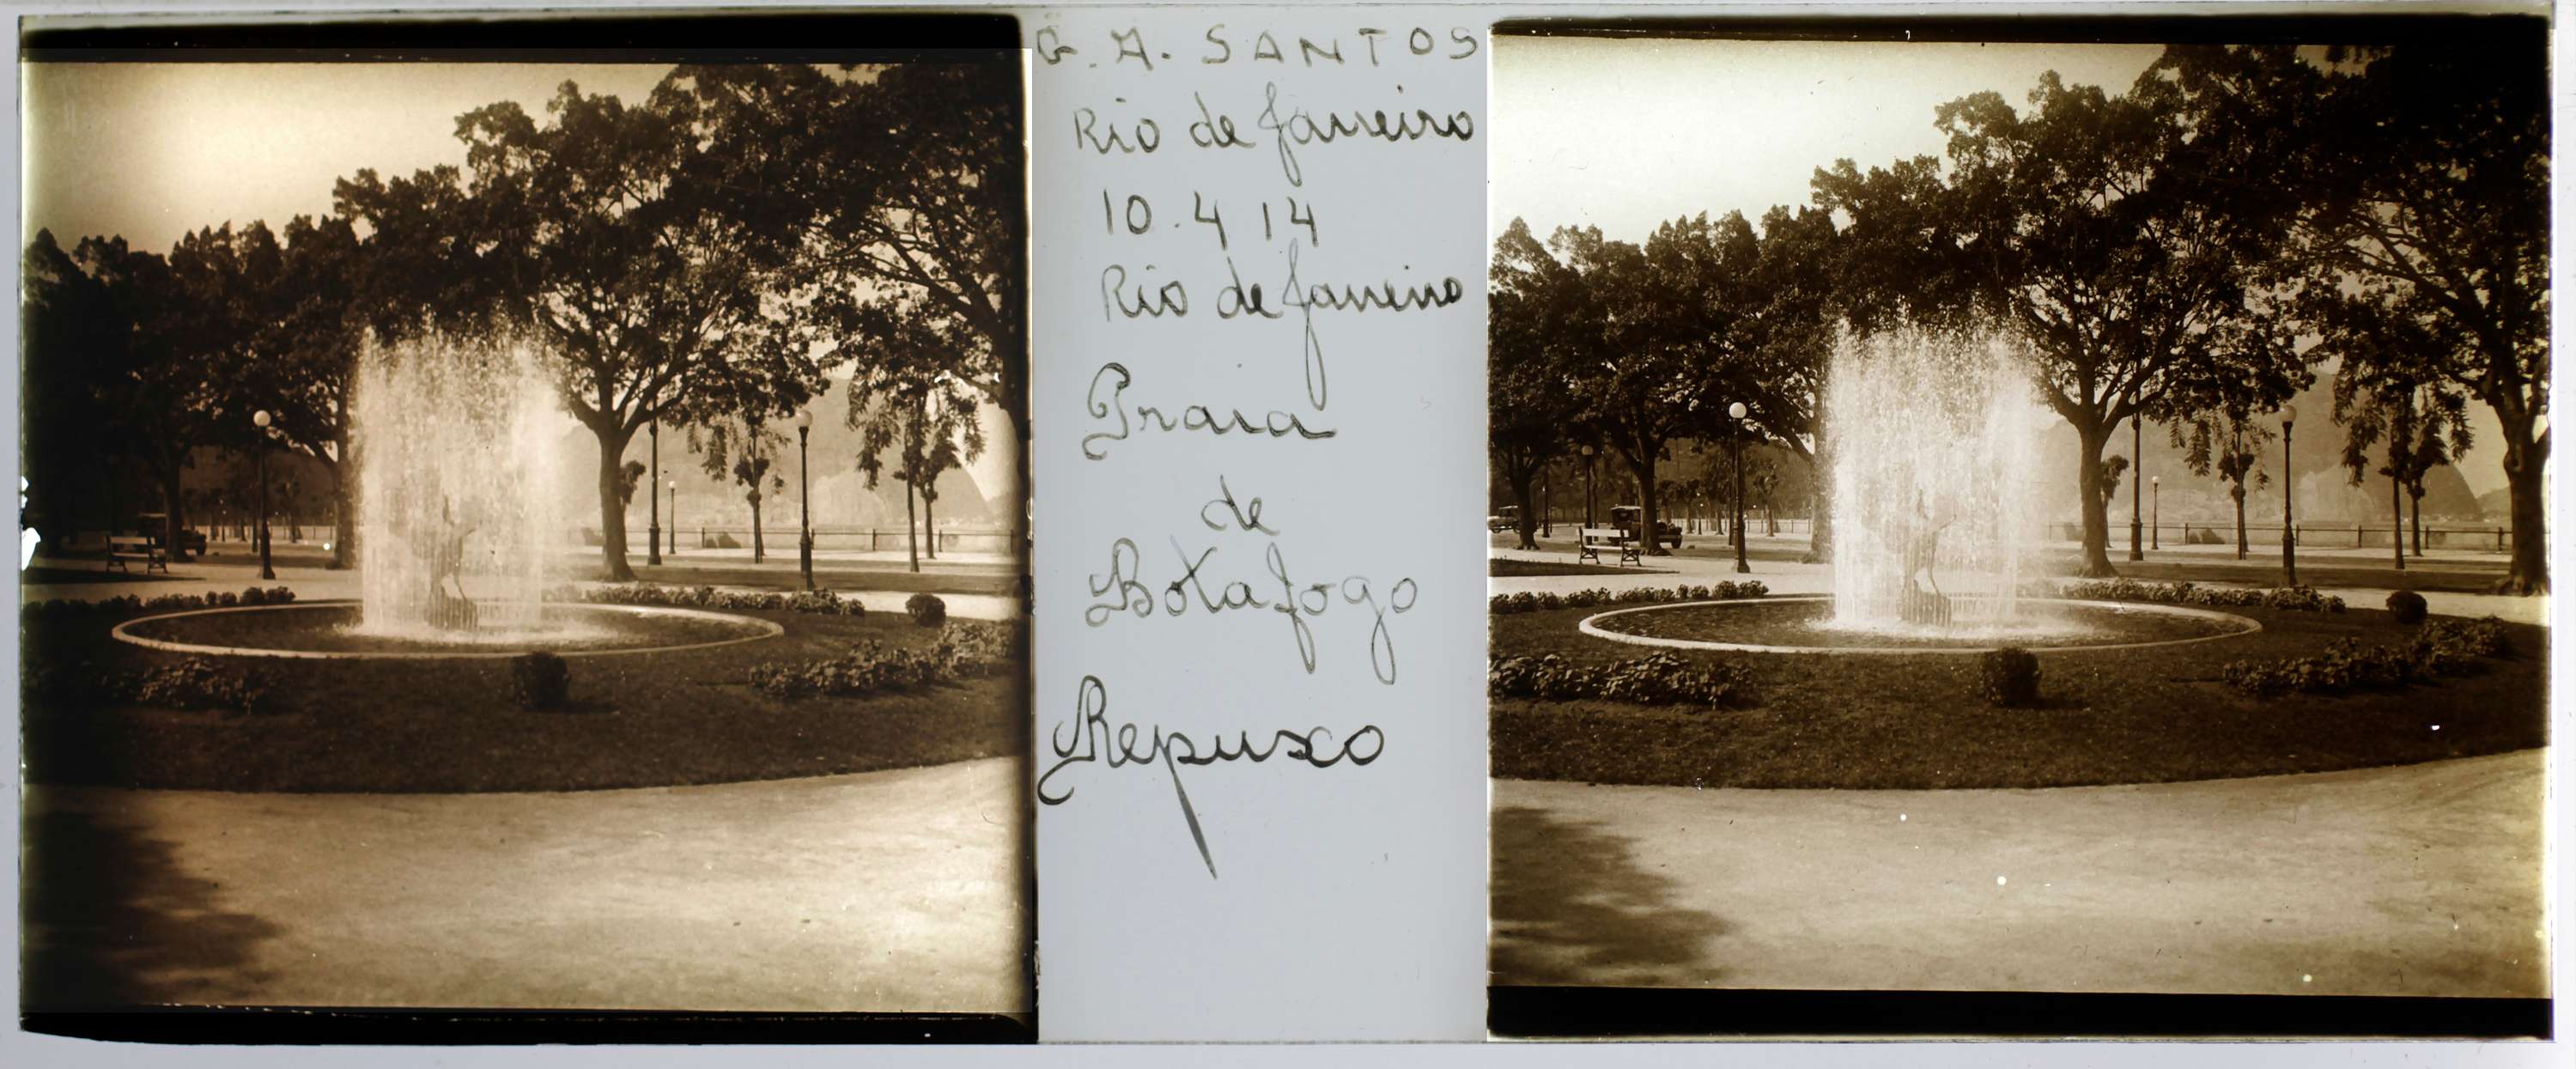 G. A. SANTOS
Rio de Janeiro
10.4 14
Rio de Janeiro
Praia
de
Botafogo
Repuxo